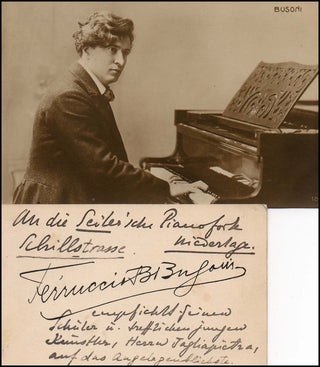 BUSONI
An die Seiler'sche Pianoforte
Schillstrasse. Niederlage.
Ferruccio B Busoni
empfiehlt seinen
Schüler u. trefflichen jungen
Künstler, Herrn Tagliapietra,
auf das Angelegentlichste.